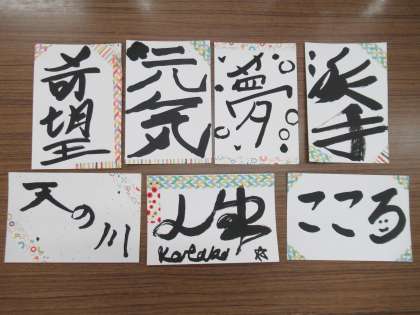 希望
元気
夢
派手
天の川
人生
こころ